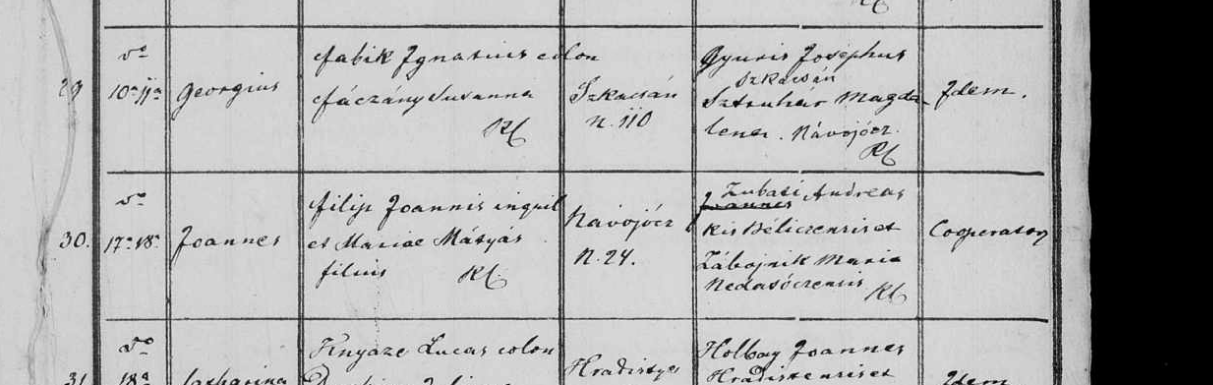 RC
29
do
10a 11a
Georgius
Fabik Ignatius colon
Fáczány Susanna
RC
Szkacsán
N. 110
Gyuris Josephus
Szkacsán
Sztruhár Magda-
lena. Návojócz.
RC
Idem.
30.
do
17a 18a
Joannes
Filip Joannis inquil
et Mariae Mátyás
filius RC
Navojócz
N. 24.
Zubati Andreas
Joannes
Kis Béliczensis et
Zábojnik Maria
Nedasóczensis
RC
Cooperator
31
do
18a
Catharina
Knyaze Lucas colon
Hradistye
Holbay Joannes
Hradistensis et
Idem